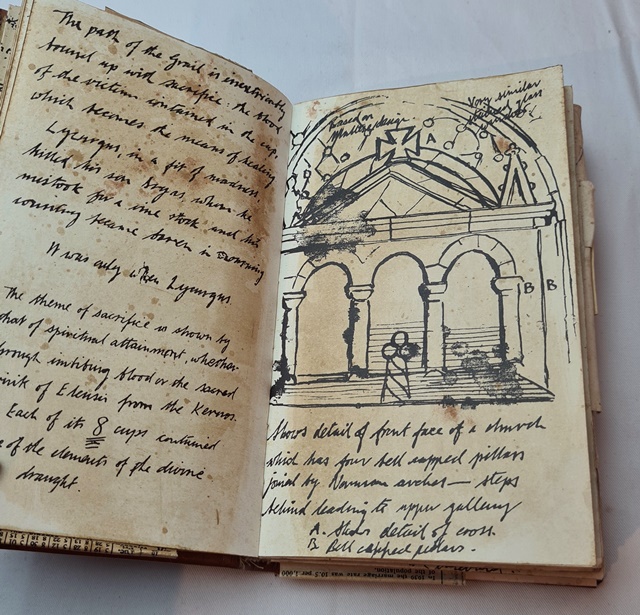 The path of the Grail is inextricably
bound up with sacrifice: the blood
of the victim contained in the cup,
which becomes the means of healing
Lycurgus, in a fit of madness,
killed his son Dryas, when he
mistook for a vine stock and his
country became barren in
It was only when Lycurgus
The theme of sacrifice is shown by
that of spiritual attainment, whether
through imbibing blood or the sacred
spirit of Eleusis from the Kernos.
Each of its 8 cups contained
of the elements of the divine
draught.
Very similar
based on
Maltese design
A
B B
Shows detail of front face of a church
which has four bell capped pillars
joined by Norman arches — steps
behind leading to upper gallery
A. Shows detail of cross.
B. Bell capped pillars.